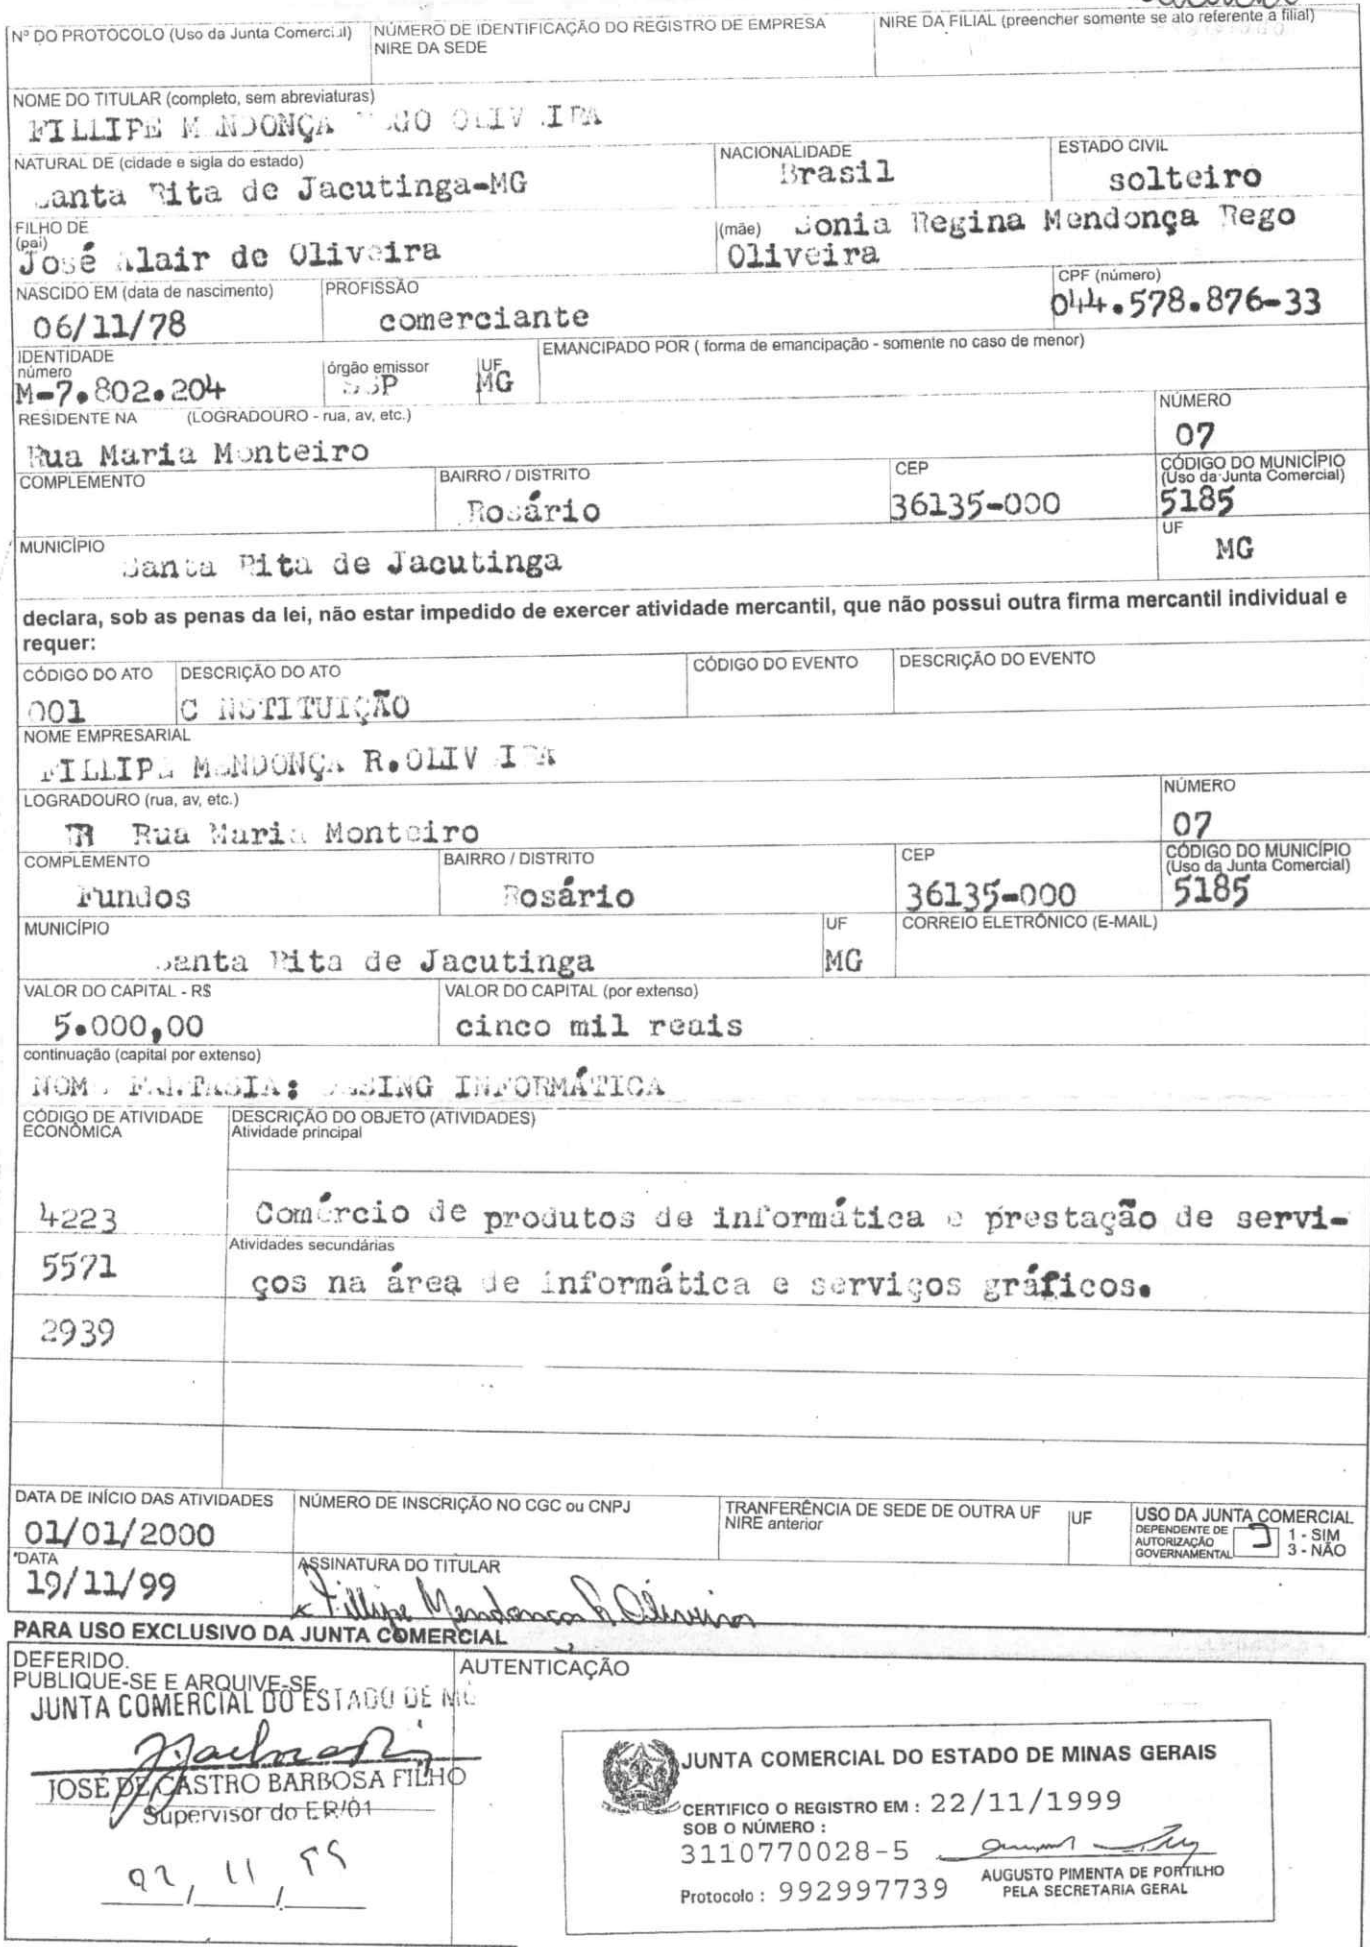 Nº DO PROTOCOLO (Uso da Junta Comercial)
NÚMERO DE IDENTIFICAÇÃO DO REGISTRO DE EMPRESA
NIRE DA SEDE
NIRE DA FILIAL (preencher somente se ato referente a filial)
NOME DO TITULAR (completo, sem abreviaturas)
FILLIPE MENDONÇA REGO OLIVEIRA
NATURAL DE (cidade e sigla do estado)
Santa Rita de Jacutinga-MG
NACIONALIDADE
Brasil
ESTADO CIVIL
solteiro
FILHO DE
(pai)
José Alair de Oliveira
(mãe) Sonia Regina Mendonça Rego
Oliveira
NASCIDO EM (data de nascimento)
06/11/78
PROFISSÃO
comerciante
CPF (número)
044.578.876-33
IDENTIDADE
número
M-7.802.204
órgão emissor
SSP
UF
MG
EMANCIPADO POR ( forma de emancipação - somente no caso de menor)
RESIDENTE NA (LOGRADOURO - rua, av, etc.)
Rua Maria Monteiro
NÚMERO
07
COMPLEMENTO
BAIRRO / DISTRITO
Rosário
CEP
36135-000
CÓDIGO DO MUNICÍPIO
(Uso da Junta Comercial)
5185
MUNICÍPIO
Santa Rita de Jacutinga
UF
MG
declara, sob as penas da lei, não estar impedido de exercer atividade mercantil, que não possui outra firma mercantil individual e
requer:
CÓDIGO DO ATO
001
DESCRIÇÃO DO ATO
CONSTITUIÇÃO
CÓDIGO DO EVENTO
DESCRIÇÃO DO EVENTO
NOME EMPRESARIAL
FILLIPE MENDONÇA R.OLIVEIRA
LOGRADOURO (rua, av, etc.)
Rua Maria Monteiro
NÚMERO
07
COMPLEMENTO
Fundos
BAIRRO / DISTRITO
Rosário
CEP
36135-000
CÓDIGO DO MUNICÍPIO
(Uso da Junta Comercial)
5185
MUNICÍPIO
Santa Rita de Jacutinga
UF
MG
CORREIO ELETRÔNICO (E-MAIL)
VALOR DO CAPITAL - R$
5.000,00
VALOR DO CAPITAL (por extenso)
cinco mil reais
continuação (capital por extenso)
NOME FANTASIA: INFORMÁTICA
CÓDIGO DE ATIVIDADE
ECONÔMICA
DESCRIÇÃO DO OBJETO (ATIVIDADES)
Atividade principal
4223
Comércio de produtos de informática e prestação de servi-
Atividades secundárias
5571
ços na área de informática e serviços gráficos.
2939
DATA DE INÍCIO DAS ATIVIDADES
01/01/2000
NÚMERO DE INSCRIÇÃO NO CGC ou CNPJ
TRANFERÊNCIA DE SEDE DE OUTRA UF
NIRE anterior
UF
USO DA JUNTA COMERCIAL
DEPENDENTE DE
AUTORIZAÇÃO
GOVERNAMENTAL
1 - SIM
3 - NÃO
DATA
19/11/99
ASSINATURA DO TITULAR
x Fillipe Mendonça R. Oliveira
PARA USO EXCLUSIVO DA JUNTA COMERCIAL
DEFERIDO.
PUBLIQUE-SE E ARQUIVE-SE
JUNTA COMERCIAL DO ESTADO DE MG
JOSÉ DE CASTRO BARBOSA FILHO
Supervisor do ER/01
11
AUTENTICAÇÃO
JUNTA COMERCIAL DO ESTADO DE MINAS GERAIS
CERTIFICO O REGISTRO EM : 22/11/1999
SOB O NÚMERO :
3110770028-5
Protocolo : 992997739
AUGUSTO PIMENTA DE PORTILHO
PELA SECRETARIA GERAL